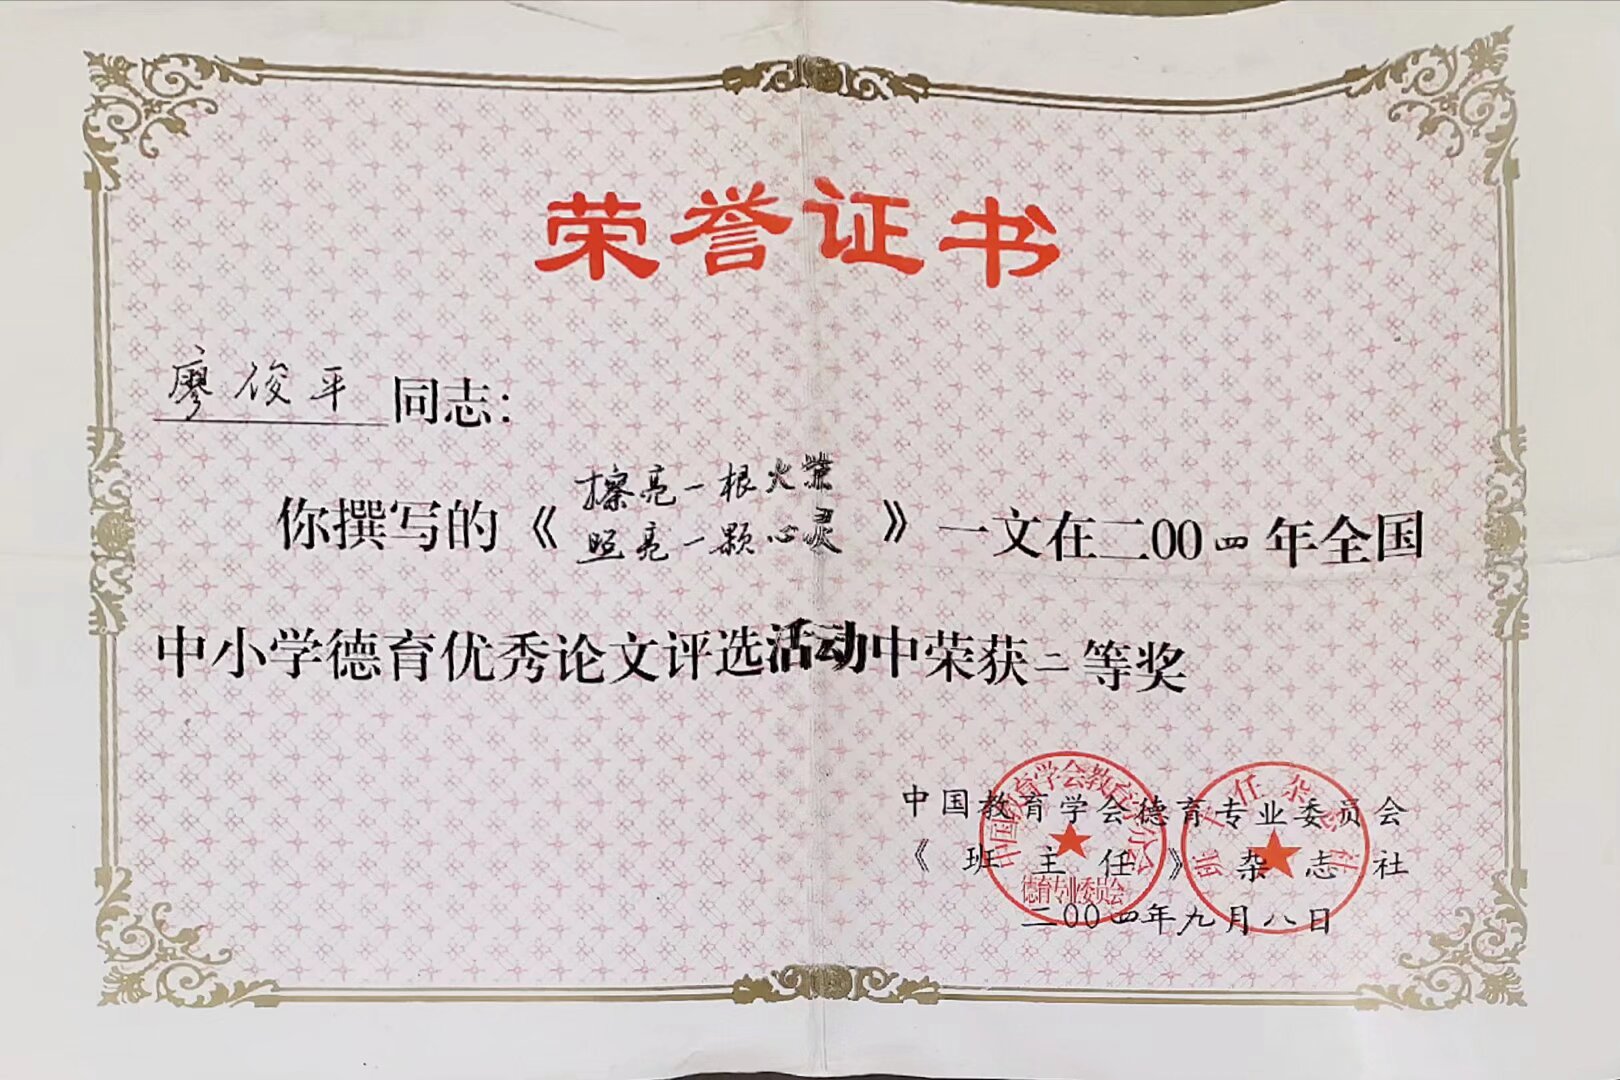 荣誉证书
廖俊平同志:
你撰写的《擦亮一根火柴
照亮一颗心灵》一文在二00四年全国
中小学德育优秀论文评选活动中荣获二等奖
中国教育学会德育专业委员会
《班主任》杂志社
二00四年九月八日
中国教育学会教育学分会
德育专业委员会
班主任杂志社